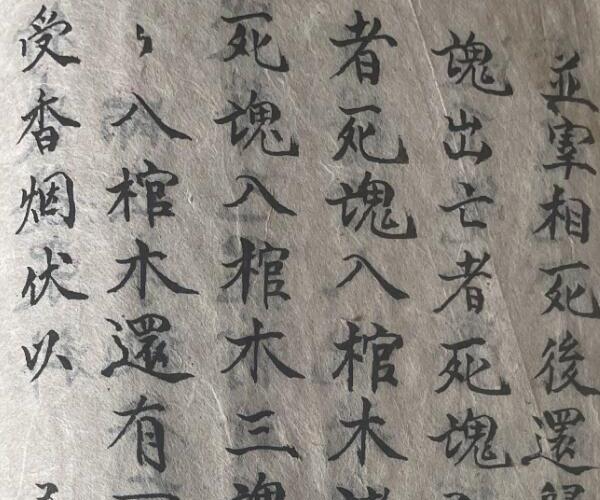 並宰相死後還
塊出亡者死塊
者死塊入棺木
死塊入棺木三塊
〻入棺木還有
受香烟伏以